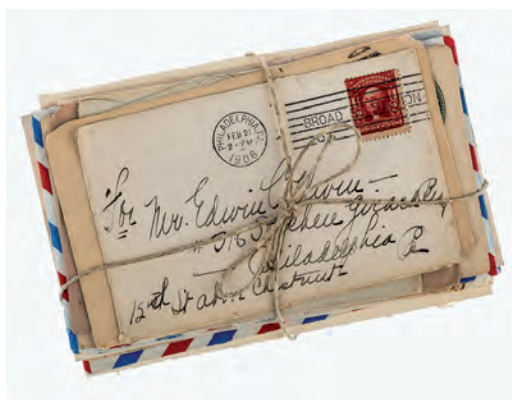 PHILADELPHIA, PA.
FEB 21
2-PM
1908
BROAD ST STATION
For Mr. Edwin
# 516 Stephen Girard Bg
Philadelphia Pa
12th St above Chestnut